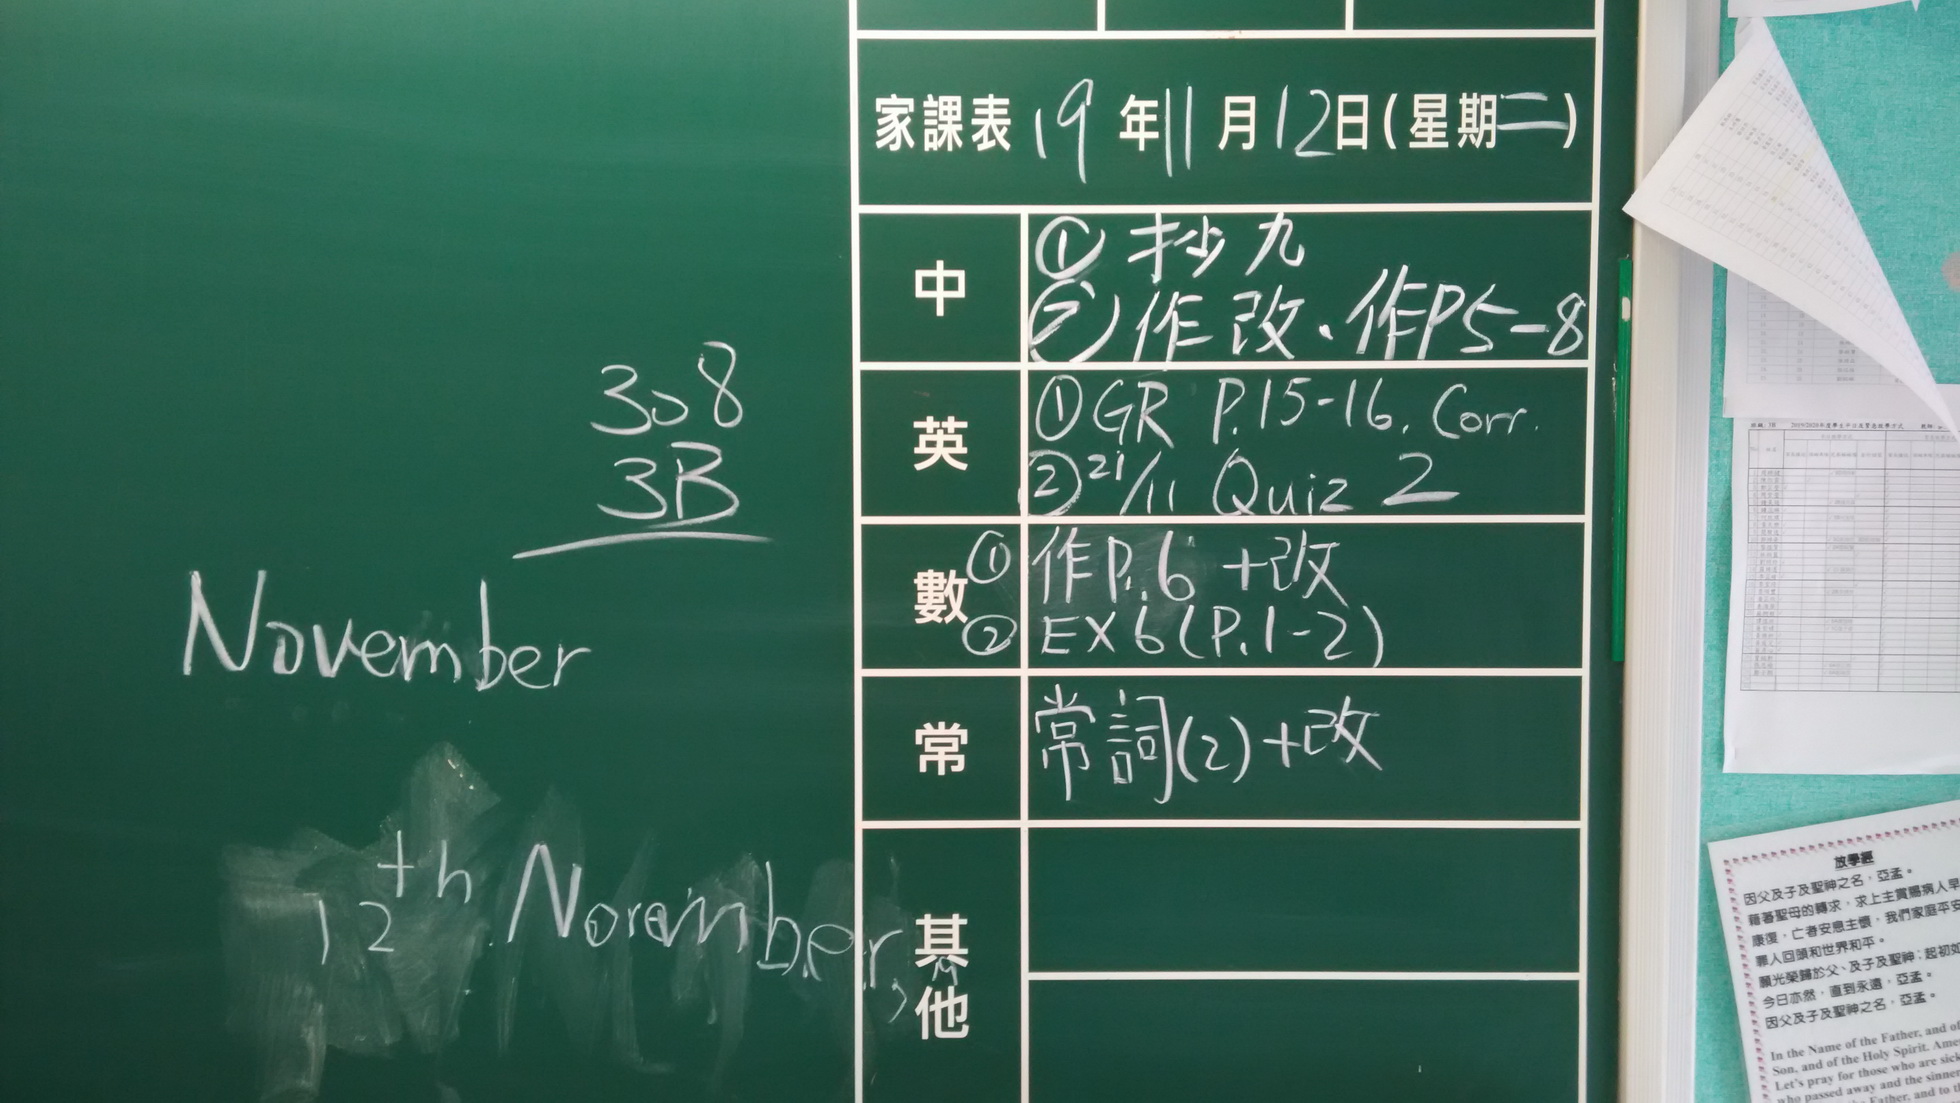 308
3B
November
12th November,
家課表 19 年 11 月 12 日 (星期二)
中
① 抄九
② 作改、作P5-8
英
① GR P.15-16. Corr.
② 21/11 Quiz 2
數
① 作P.6 +改
② EX6(P.1-2)
常
常詞(2)+改
其他
放學經
因父及子及聖神之名,亞孟。
藉著聖母的轉求,求上主賞賜病人早
康復,亡者安息主懷,我們家庭平安
罪人回頭和世界和平。
願光榮歸於父、及子及聖神;起初如
今日亦然,直到永遠,亞孟。
因父及子及聖神之名,亞孟。
In the Name of the Father, and of
Son, and of the Holy Spirit. Ame
Let's pray for those who are sick
who passed away and the sinner
Father, and to th